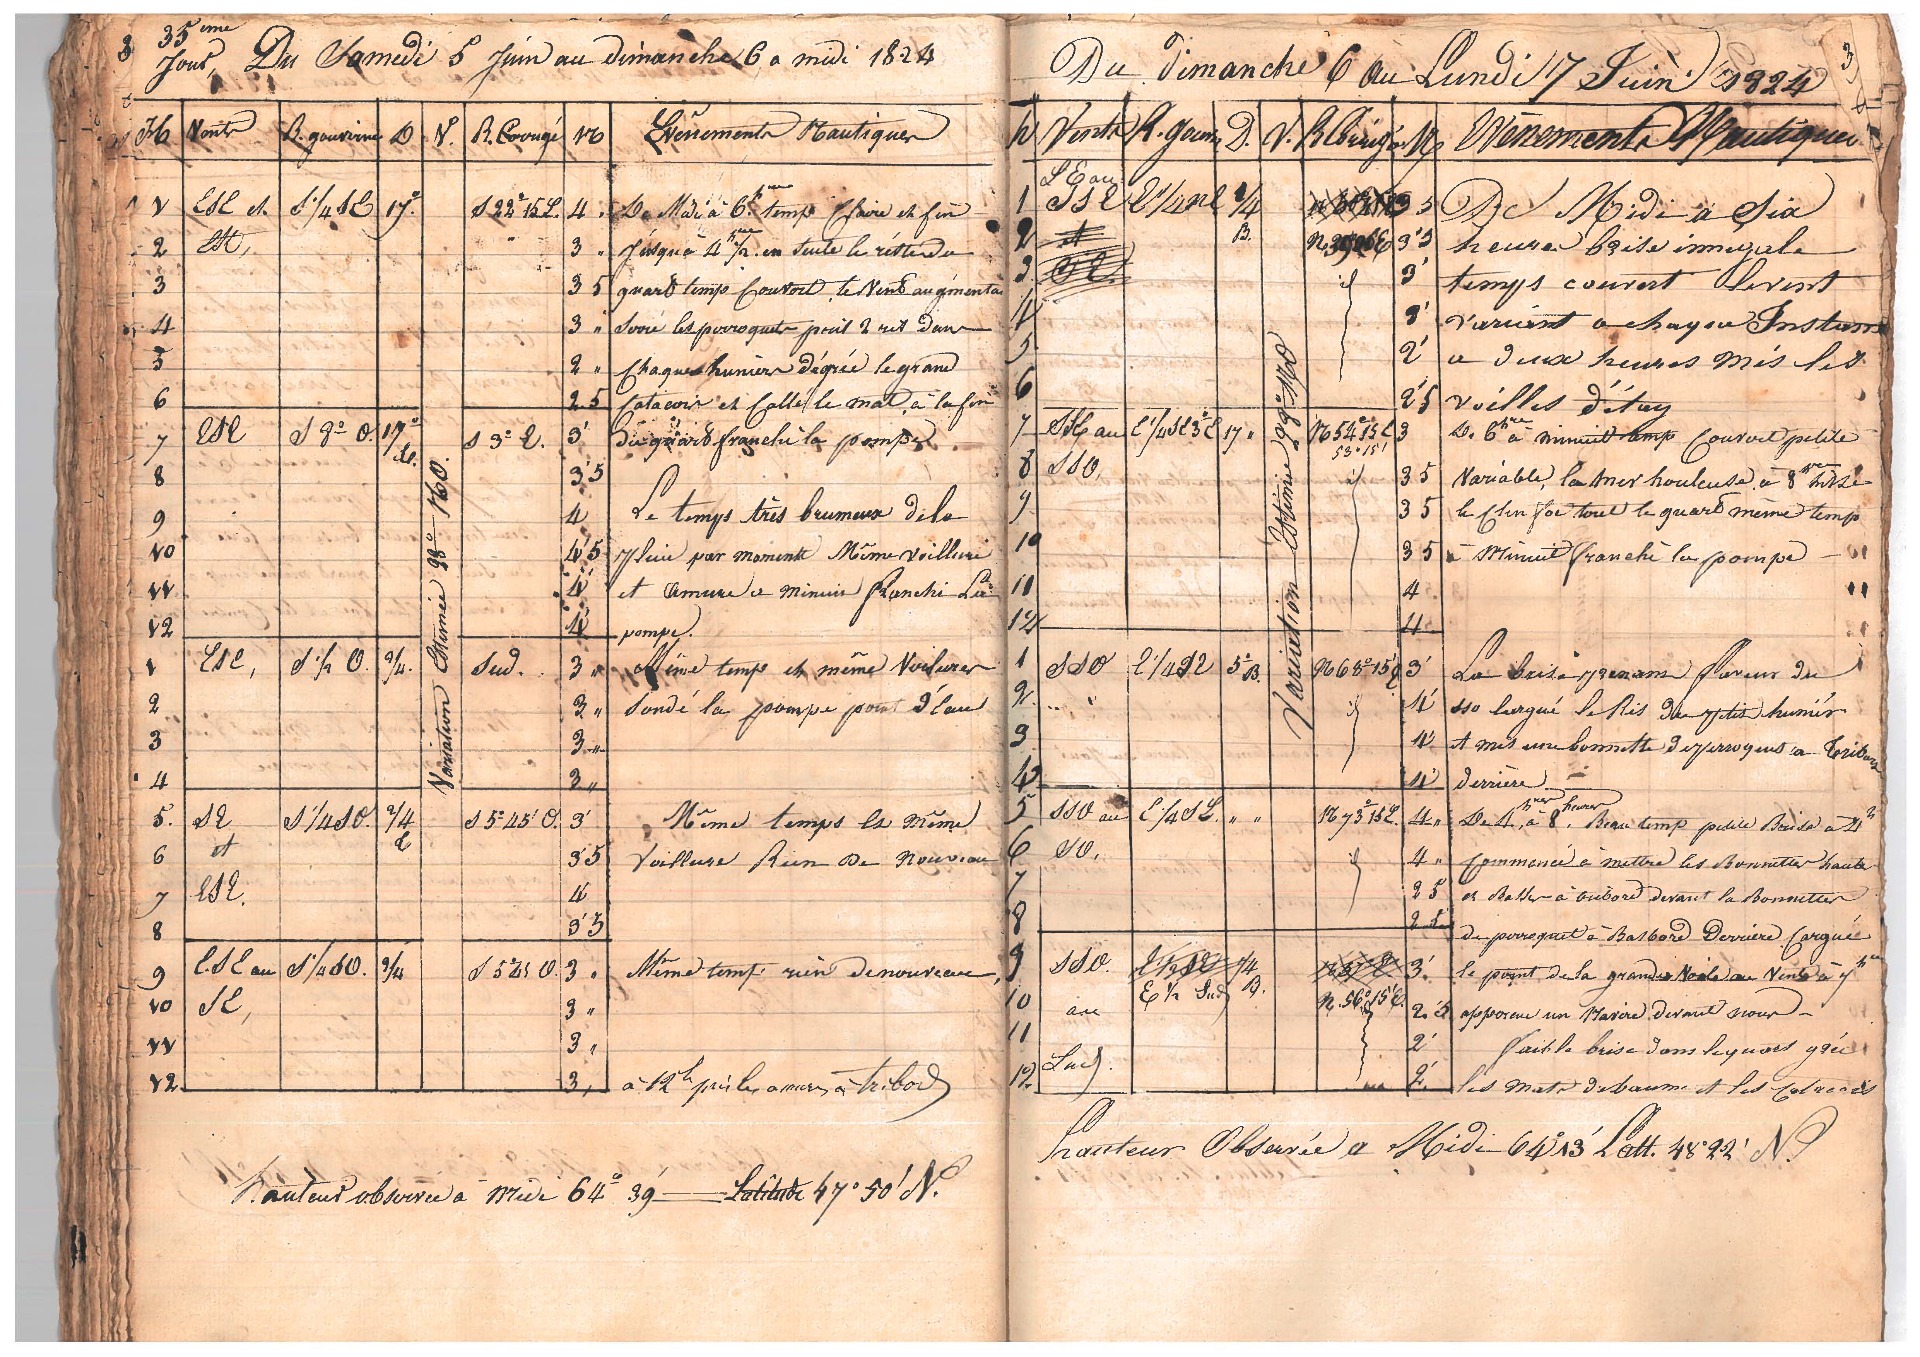 35ème
Jour, Du Samedi 5 Juin au dimanche 6 a midi 1824
H Vents R. gouverne D V. R. Corrigé M Evênements Nautiques
1 ESE et S 1/4 SE 17° S 22° 15 E. 4 De Midi à 6 hres temp Claire et fin
2 Est, 3 " jusqu'à 4 hres 1/2 en suite le reste du
3 3 5 quard temp Couvert, le Vent augmenta
4 3 " Serré les perroquets prit 2 ris dans
5 2 " Chaque huniers dégrée le grand
6 2 5 Catacois et Callé le mat, à la fin
7 ESE S 8° O. 17° S 3° E. 3' du quard franchi la pompe
8 3'5
9 4 Le temps très brumeux de la
10 4'5 pluie par moments Même voillure
11 4' et amure a minuit franchi La
12 4' pompe.
Variation Estimée 28° NO.
1 ESE, S 1/2 O. 2/4. Sud. 3 " Même temp et même Voilure
2 3 " Sondé la pompe point d'eau
3 3 "
4 3 "
5. SE S 1/4 SO. 2/4 S 5° 45' O. 3' Même temps et Même
6 et 3'5 Voillure Rien De nouveau
7 ESE. 4
8 3'5
9 ESE au S 1/4 SO. 2/4 S 5° 45 O. 3 " Même temp rien de nouveau,
10 SE, 3 "
11 3 "
12 3, à 12 h pris les amures à tribord
hauteur observée à midi 64° 39' Latitude 47° 50' N.
3
Du dimanche 6 au Lundi 7 Juin 1824
h Vents R. gouv D. V. R Corrigé M Evênements Nautiques
SE au
1 SSE E 1/4 NE 2/4 3 5 De Midi à Six
2 et B. 3'5 heures brise innegale
3 3' temps couvert le vent
4 3' varient a chaque Instant
5 2' a deux heures mis les
6 2'5 voilles d'étay
7 SSE au E 1/4 SE 3° E 17 " N 54° 15 E 3 De 6 hres à minuit temp Couvert petite
53° 15'
8 SSO, 3 5 Variable, la mer houleuse, à 8 hres
9 3 5 le Clin foc tout le quard même temp
10 3 5 à Minuit franchi la pompe
11 4
12 4
Variation Estimée 28° NO
1 SSO E 1/4 SE 5° B. N 68° 15' E 3' La brise prenant faveur du
2 " 4' sso largué le Ris du petit hunier
3 4' et mis une bonnette de perroquet a Tribord
4 4' derrière
5 SSO au E 1/4 SE. " " N 73 15 E. 4 " De 4 hres à 8 heures Beau temp petite Brise à 4 h
6 SO, 4 " Commencé à mettre les Bonnettes hautes
7 2 5 et Basses à tribord devant la Bonnette
8 2 5 de perroquet à Basbord Derrière Cargué
9 SSO. 2/4 3' le point de la grande Voile au Vent à 7 hres
10 au E 1/2 Sud B. N. 56° 15' E. 2.5 apperçu un Navire devant nous
11 2' faible brise dans le quart gréé
12 Sud. 2' les mats de baume et les Catacois
hauteur Observée a Midi 64° 13' Latt. 48° 22' N.